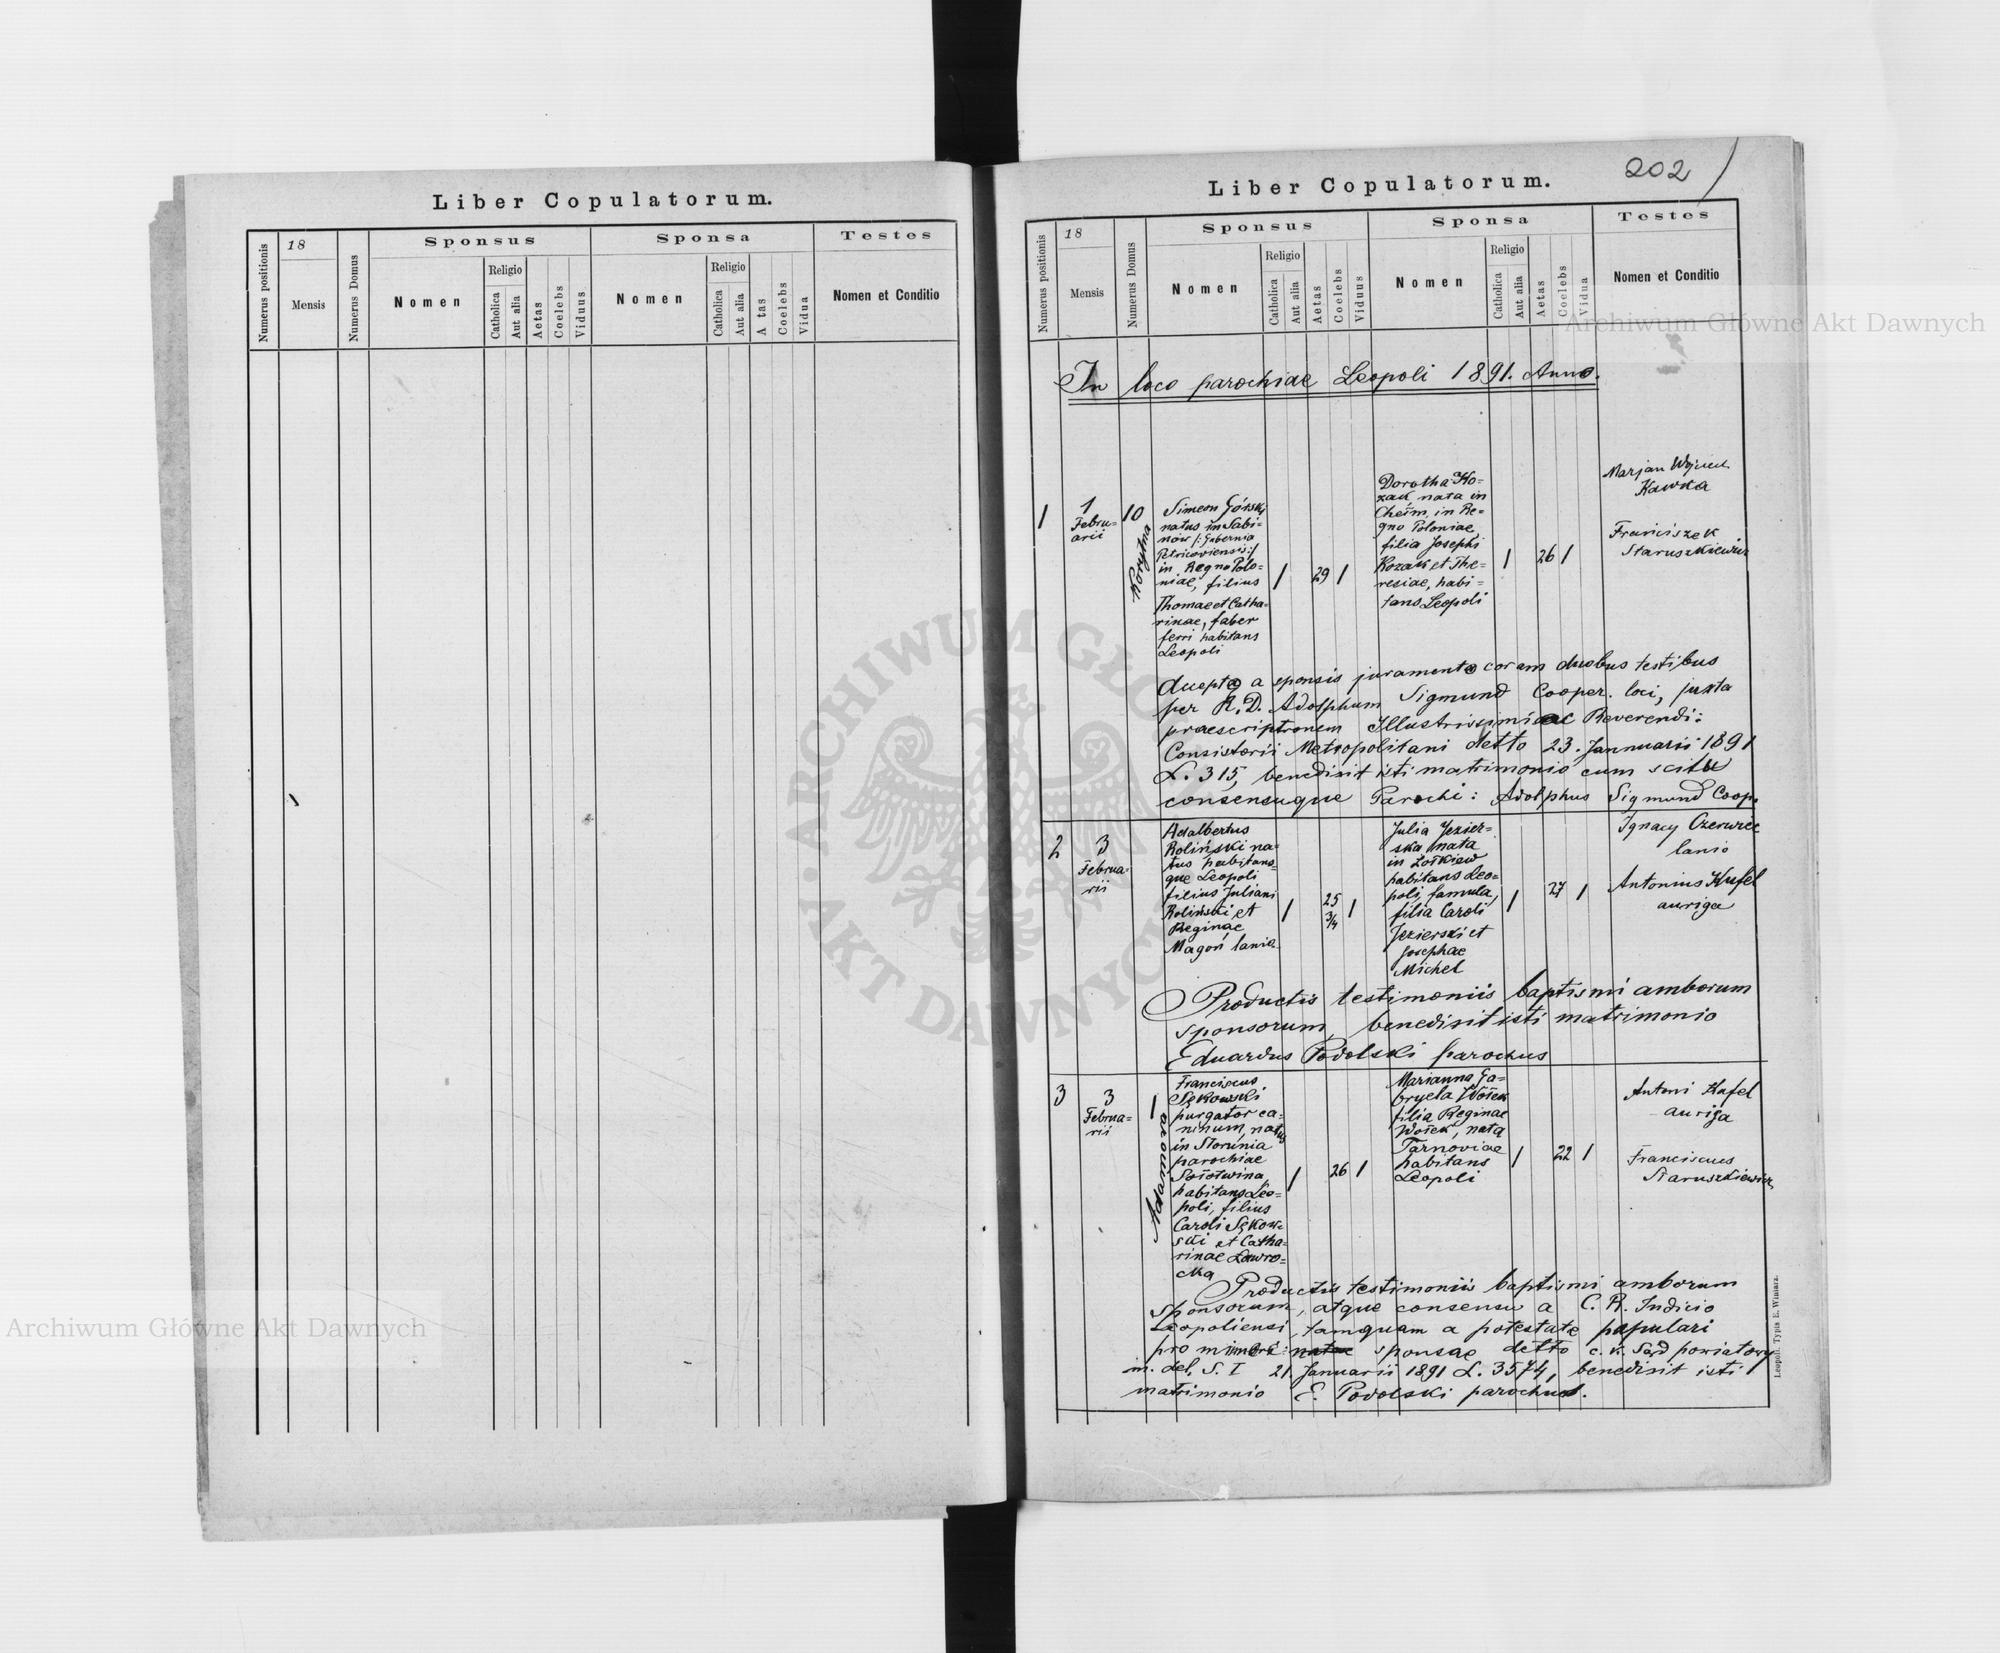 Liber Copulatorum.
Numerus positionis
18
Mensis
Numerus Domus
Sponsus
Nomen
Religio
Catholica
Aut alia
Aetas
Coelebs
Viduus
Sponsa
Nomen
Religio
Catholica
Aut alia
A tas
Coelebs
Vidua
Testes
Nomen et Conditio
Liber Copulatorum.
202
Numerus positionis
18
Mensis
Numerus Domus
Sponsus
Nomen
Religio
Catholica
Aut alia
Aetas
Coelebs
Viduus
Sponsa
Nomen
Religio
Catholica
Aut alia
Aetas
Coelebs
Vidua
Testes
Nomen et Conditio
In loco parochiae Leopoli 1891. Anno.
1
1
Febru=
arii
10
Korytna
Simeon Górski
natus in Sabi=
nów /: Gubernia
Petricoviensis :/
in Regno Polo=
niae, filius
Thomae et Catha=
rinae, faber
ferri habitans
Leopoli
1
29
1
Dorotha Ko=
zak nata in
Chełm, in Re=
gno Poloniae,
filia Josephi
Kozak et The=
resiae, habi=
tans Leopoli
1
26
1
Marjan
Kawka
Franciszek
Staruszkiewicz
a sponsis juramento coram duobus testibus
per R. D. Adolphum Sigmund Cooper. loci, juxta
praescriptionem Reverendi:
Consistorii Metropolitani detto 23. Jannuarii 1891
L. 315, benedixit isti matrimonio cum scitu
consensuque Parochi: Adolphus Sigmund Coop.
2
3
Februa=
rii
Adalbertus
Roliński na=
tus habitans=
que Leopoli
filius Juliani
Roliński et
Reginae
Magoń lanio
1
25
3/4
1
Julia Jezier=
ska nata
in Żółkiew
habitans Leo=
poli, famula,
filia Caroli
Jezierski et
Josephae
Michel
1
27
1
Ignacy Czerwiec
lanio
Antonius Kufel
auriga
Productis testimoniis baptismi amborum
sponsorum, benedixit isti matrimonio
Eduardus Podolski parochus
3
3
Februa=
rii
1
Adamowo
Franciscus
Sękowski
purgator ca=
ninum, natus
in Starunia
parochiae
Sołotwina,
habitans Leo=
poli, filius
Caroli Sękow=
ski et Catha=
rinae Lawro=
cka
1
26
1
Marianna Ga=
bryela Wołek
filia Reginae
Wołek, nata
Tarnoviae
habitans
Leopoli
1
22
1
Antoni Kufel
auriga
Franciscus
Staruszkiewicz
Productis testimoniis baptismi amborum
sponsorum, atque consensu a C. R. Judicio
Leopoliensi, tamquam a potestate pupulari
pro sponsae detto c. k. Sąd powiatowy
m. del. S. I 21. Januarii 1891 L. 3574, benedixit isti
matrimonio E. Podolski parochus.
Leopoli. Typis E. Winiarz.
Archiwum Główne Akt Dawnych
Archiwum Główne Akt Dawnych
ARCHIWUM GŁÓWNE AKT DAWNYCH